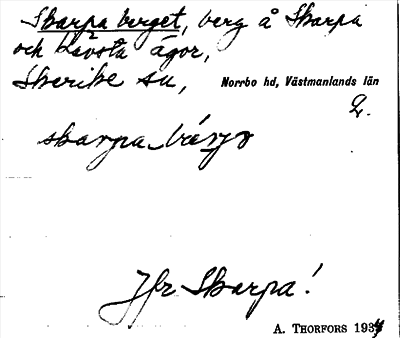 Skarpa berget, berg å Skarpa
och Låvsta ägor,
Skerike sn,
Norrbo hd, Västmanlands län
skarpa
Jfr Skarpa!
A. THORFORS 1934